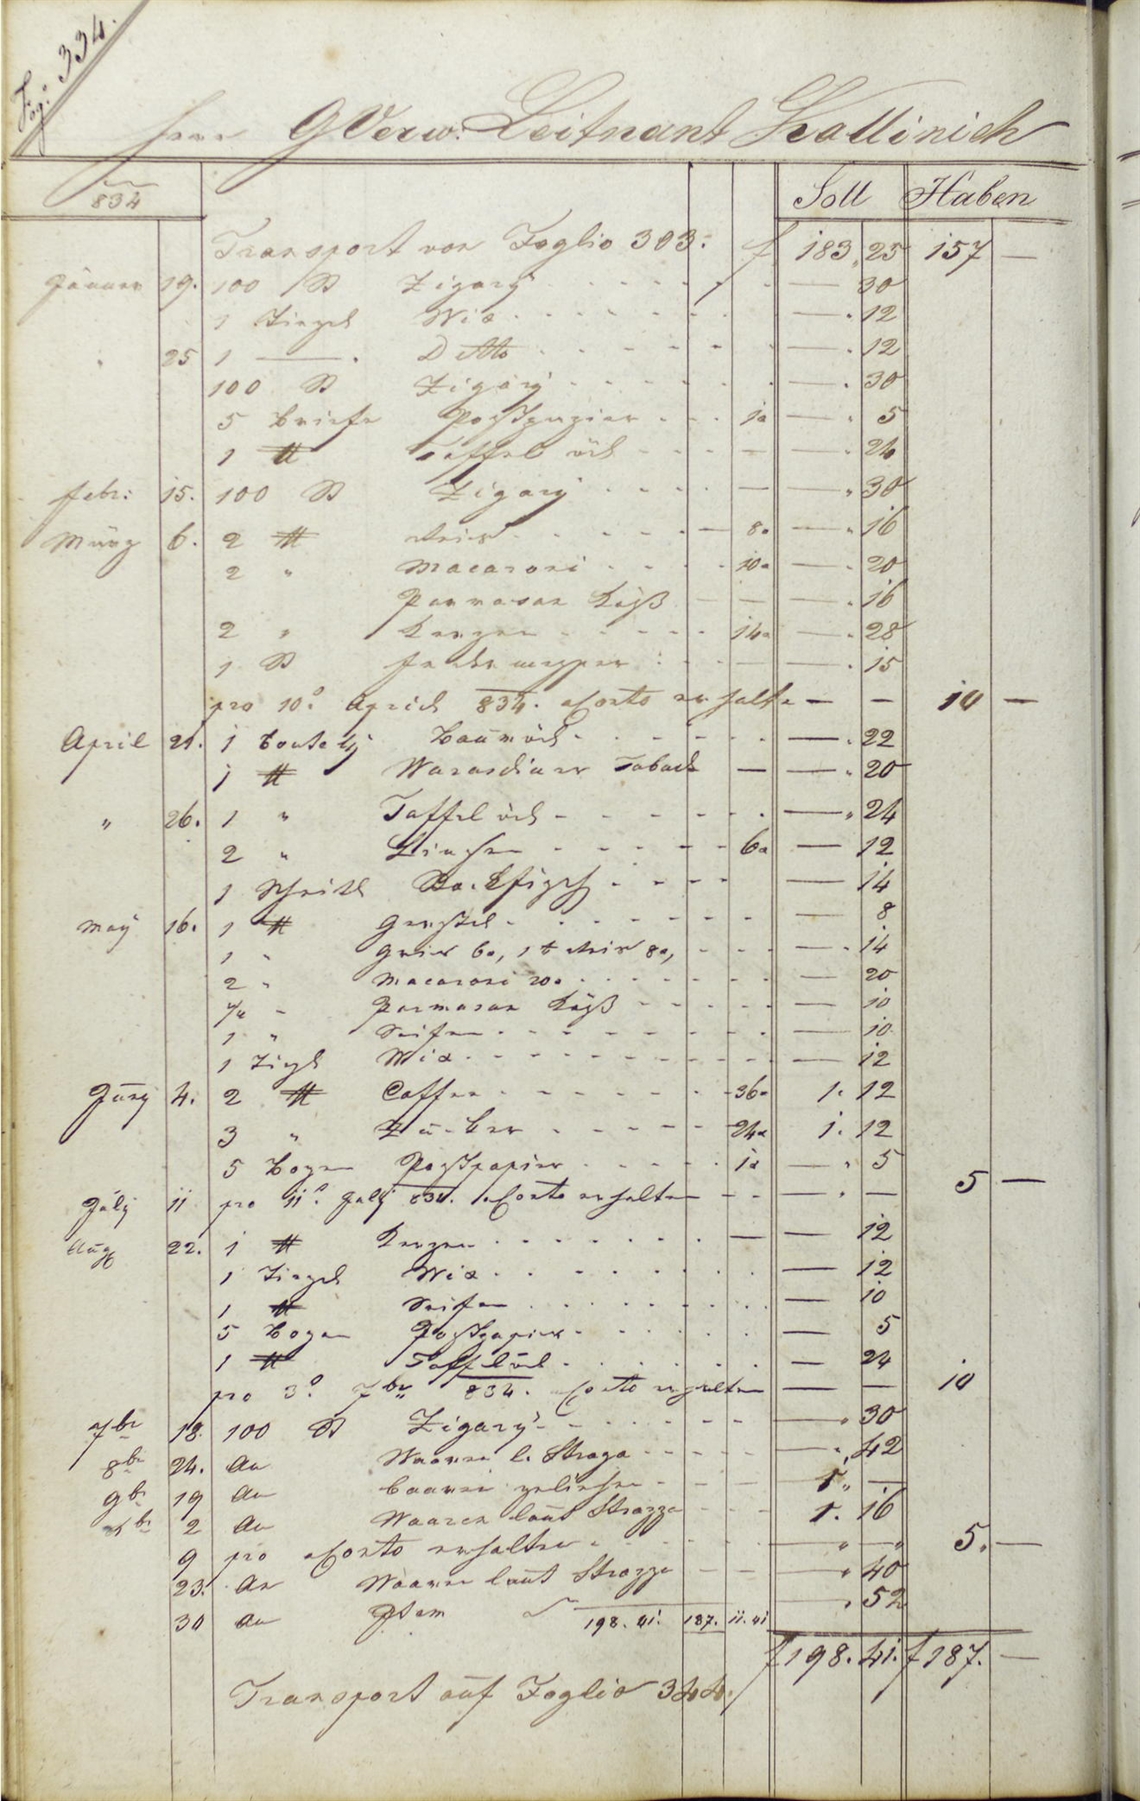 Fog: 334.
Herr GVerw: Leitnant Kallinich
834 Soll Haben
Transport von Foglio 303. f 183 25 157 —
Jänner 19. 100 St Zigary — 30
1 Tiegel Wix — 12
" 25 1 — Detto — 12
100 St Zigary — 30
5 Briefe Postpapier 1a — 5
1 ℔ Taffel öel — 24
Febr: 15. 100 St Zigary — 30
März 6. 2 ℔ Reis 8a — 16
2 " Macaroni 10a — 20
Parmasan Käß — 16
2 " Kerzen 14a — 28
1 St — 15
pro 10º April 834. Conto erhalten — — 10 —
April 21. 1 Boutelj Baumöel — 22
1 ℔ Warasdiner Taback — 20
" 26. 1 " Taffel öel — 24
2 " Linsen 6a — 12
1 Stockfisch — 14
May 16. 1 ℔ Gerstel — 8
1 " Gries 6a, 1 ℔ Reis 8a, — 14
2 " Macaroni 10a — 20
¼ " Parmasan Käß — 10
1 " Seifen — 10
1 Tiegl Wix — 12
Juny 4. 2 ℔ Caffee 36a 1. 12
3 " Zucker 24a 1. 12
5 Bogen Postpapier 1a — 5
July 11 pro 11º July 834. Conto erhalten — — 5 —
Aug 22. 1 ℔ Kerzen — 12
1 Tiegel Wix — 12
1 ℔ Seifen — 10
5 Bogen Postpapier — 5
1 ℔ Taffelöel — 24
pro 3º 7br 834. Conto erhalten — — 10
7br 18. 100 St Zigary — 30
8br 24. An Waaren l. Strazza — 42
9br 19 An baarem geliehen 5 —
xbr 2 An Waaren laut Strazza 1. 16
9 pro Conto erhalten " — " 5. —
23. An Waaren laut Strazza " 40
30 An Item 198. 41. 187. 11. 41 " 52
f 198. 41. f 187. —
Transport auf Foglio 344.